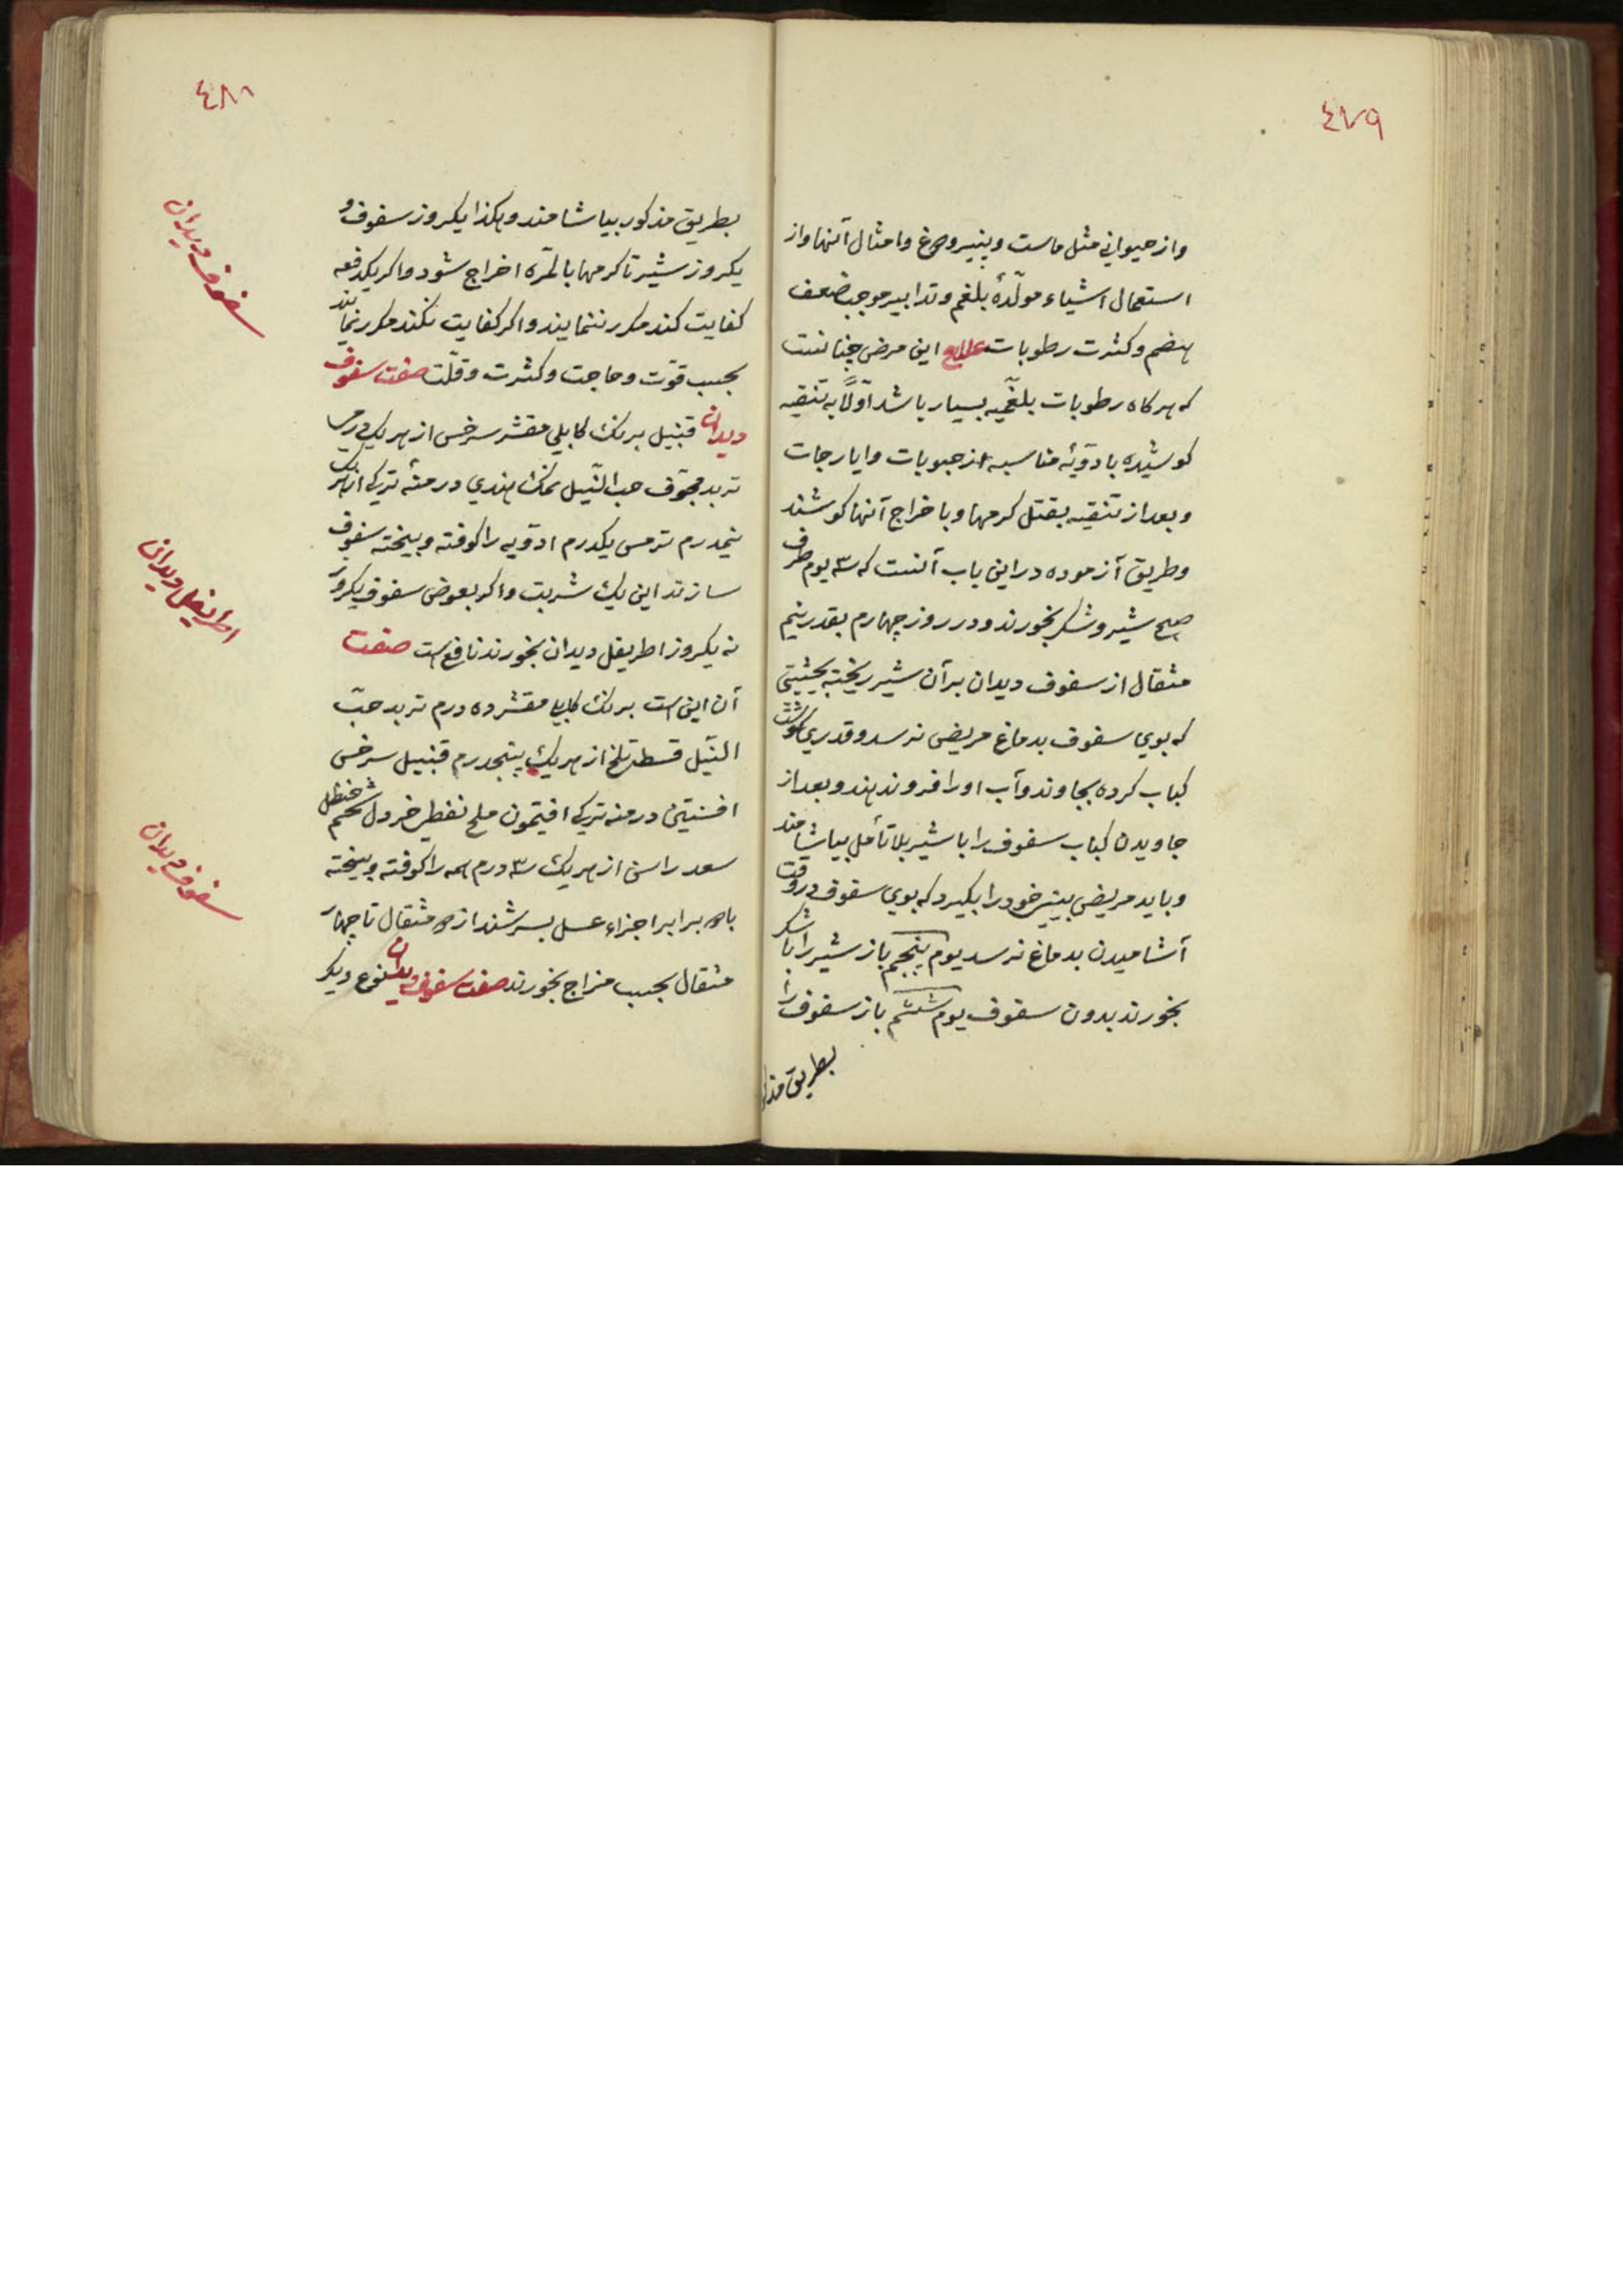 ٤٧٩
واز حیوانی مثل ماست وپنیر ودوغ وامثال آنها واز
استعمال اشیاء مولّدهٔ بلغم وتدابیر موجب ضعف
هضم وکثرت رطوبات علاج این مرض چنانست
که هرکاه رطوبات بلغمیه بسیار باشد اوّلاً به تنقیه
کوشیده بادویهٔ مناسبه از حبوبات وایارجات
وبعد از تنقیه بقتل کرمها وباخراج آنها کوشند
وطریق آزموده دراین باب آنست که ٣ یوم طرف
صبح شیر وشکر بخورند ودر روز چهارم بقدر نیم
مثقال از سفوف دیدان بر آن شیر ریخته بحیثیتی
که بوی سفوف بدماغ مریض نرسد وقدری کوشت
کباب کرده بجاوند وآب اورا فرو ندهند وبعد از
جاویدن کباب سفوف را با شیر بلا تأمل بیاشامند
وباید مریض بینی خود را بکیرد که بوی سفوف در وقت
آشامیدن بدماغ نرسد یوم پنجم باز شیر را با شکر
بخورند بدون سفوف یوم ششم باز سفوف را
بطریق مذکور
٤٨٠
بطریق مذکور بیاشامند وهکذا یکروز سفوف و
یکروز شیر تا کرمها بالمرّه اخراج شود واکر یکدفعه
کفایت کند مکرر ننمایند واکر کفایت نکند مکرر نمایند
بحسب قوّت وحاجت وکثرت وقلّت صفت سفوف
دیدان قنبیل برنک کابلی مقشر سرخس از هریک درمی
تربد مجوّف حب النّیل نمک هندی درمنهٔ ترکی از هریک
نیمدرم ترمس یکدرم ادویه را کوفته وبیخته سفوف
سازند این یک شربت واکر بعوض سفوف یکروز
نه یکروز اطریفل دیدان بخورند نافع است صفت
آن این است برنک کابلی مقشر ده درم تربد حبّ
النّیل قسط تلخ از هریک پنجدرم قنبیل سرخس
افسنتین درمنه ترکی افتیمون ملح نفطی خردل شحم حنظل
سعد راسن از هریک ٣ درم همه را کوفته وبیخته
با برابر اجزاء عسل بسرشند از مثقال تا چهار
مثقال بحسب مزاج بخورند صفت سفوف دیدان بنوع دیکر
سفوف دیدان
اطریفل دیدان
سفوف دیدان